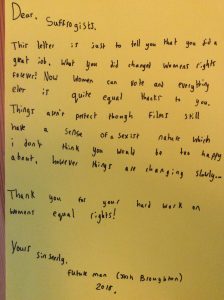 Dear. Suffrogists.
This letter is just to tell you that you did a
great job. What you did changed womens rights
forever! Now women can vote and everything
else is quite equal thanks to you.
Things aren't perfect though films still
have a sense of a sexist nature which
i don't think you would be too happy
about, however things are changing slowly...
Thank you for your hard work on
womens equal rights!
Yours sincerly,
future man (Josh Broughton)
2018.